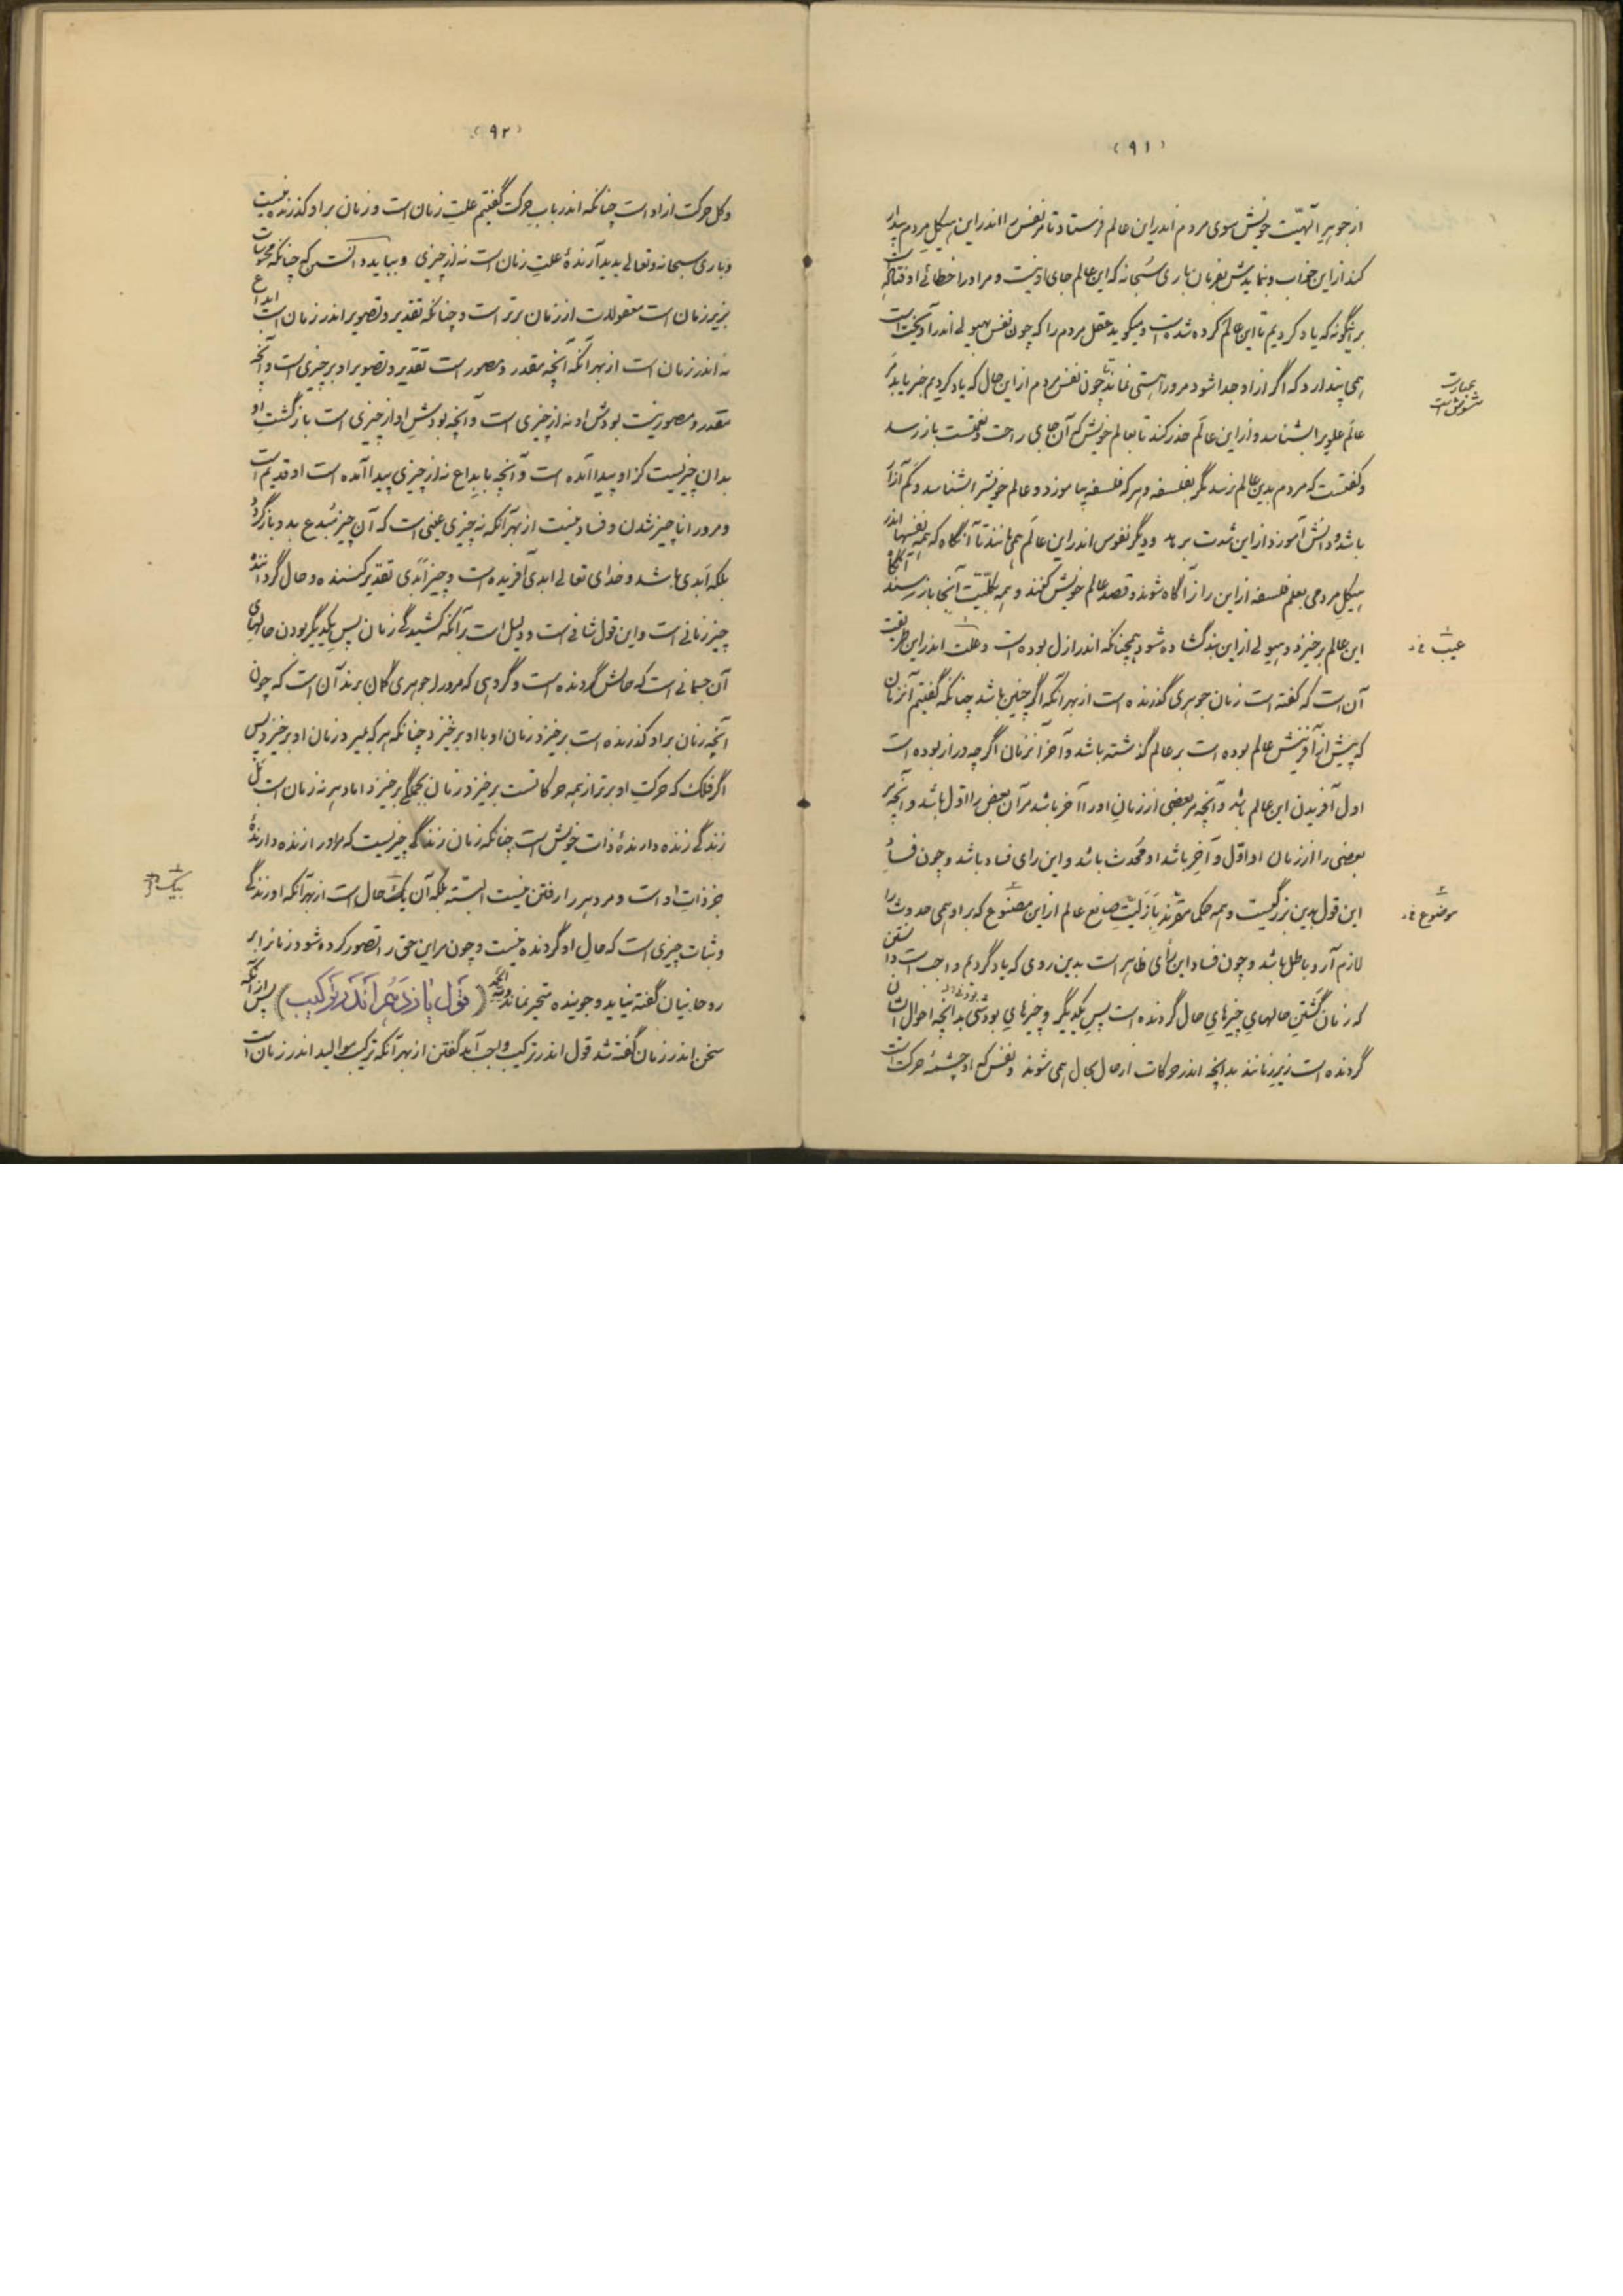 (۹۱)
از جوهر آلهیّت خویش سوی مردم اندر این عالم فرستاد تا مر نفس را اندر این هیکل مردم بیدار
کند از این خواب و بنمایدش بفرمان باری سبحانه که این عالم جای او نیست و مر او را خطائی اوفتاد است
بر اینگونه که یاد کردیم تا این عالم کرده شده است و میگوید عقل مردم را که چون نفس بهیولی اندر آویخته است
همی پندارد که اگر از او جدا شود مر او را هستی نماند تا چون نفس مردم از این حال که یاد کردیم خبر یابد مر
عبارت مشوش است
عالم علوی را بشناسد و از این عالم حذر کند تا بعالم خویش که آن جای راحت و نعمت است باز رسد
و گفتست که مردم بدین عالم نرسد مگر بفلسفه و هر که فلسفه بیاموزد و عالم خویش را بشناسد و کم آزار
باشد و دانش آموزد از این شدت برهد و دیگر نفوس اندر این عالم همی مانند تا آنگاه که همه نفسها اندر
هیکل مردمی بعلم فلسفه از این راز آگاه شوند و قصد عالم خویش کنند و همه بکلّیّت آنجا باز رسند آنگاه
این عالم برخیزد و هیولی از این بند گشاده شود همچنانکه اندر ازل بوده است و علت اندر این طریقت
عیب خ‌د
آن است که گفته است زمان جوهری گذرنده است از بهر آنکه اگر چنین باشد چنانکه گفتیم آنزمان
که پیش از آفرینش عالم بوده است بر عالم گذشته باشد و آخر آنزمان اگر چه دراز بوده است
اول آفریدن این عالم باشد و آنچه مر بعضی از زمان او را آخر باشد مر آن بعض را اول باشد و آنچه مر
بعضی را از زمان او اوّل و آخر باشد او مُحدث باشد و این رای فساد باشد و چون فساد
این قول بدین بزرگیست و همه حکما مقرند بازلیّت صانع عالم از این مصنوع که بر او همی حدوث را
موضوع خ‌د
لازم آرد باطل باشد و چون فساد این رأی ظاهر است بدین روی که یاد کردیم واجب است دانستن
که زمان گشتن حالهایِ چیزهایِ حال گردنده است پس یکدیگر و چیزهایِ بودشی بدانچه احوال ایشان
گردنده است زیر زمانند بدانچه اندر حرکات از حال بحال همی شوند و نفس که او چشمهٔ حرکت است
(۹۲)
و کل حرکت از او است چنانکه اندر باب حرکت گفتیم علتِ زمان است و زمان بر او گذرنده نیست
و باری سبحانه و تعالی پدید آرندهٔ علتِ زمان است نه از چیزی و بباید دانستن که چنانکه محسوسات
بزیر زمان است معقولات از زمان برتر است و چنانکه تقدیر و تصویر اندر زمان است ابداع
نه اندر زمان است از بهر آنکه آنچه مقدر و مصور است تقدیر و تصویر او بر چیزی است و آنچه
مقدر و مصور نیست بودش او نه از چیزی است و آنچه بودشِ او از چیزی است بازگشتِ او
بدان چیز است کز او پیدا آمده است و آنچه بابداع نه از چیزی پیدا آمده است او قدیم است
و مر او را ناچیز شدن و فساد نیست از بهر آنکه نه چیزی عینی است که آن چیز مُبدع بدو باز گردد
بلکه ابدی باشد و خدای تعالی ابدی آفریده است و چیز ابدی تقدیر کننده و حال گرداننده
چیز زمانی است و این قول شافی است و دلیل است بر آنکه کشیدگی زمان پس یکدیگر بودن حالهای
آن جسمانی است که حالش گردنده است و گروهی که مر او را جوهری گمان برند آن است که چون
آنچه زمان بر او گذرنده است برخیزد زمان او با او برخیزد چنانکه هر که بمیرد زمان او برخیزد پس
اگر فلک که حرکتِ او برتر از همه حرکاتست برخیزد زمان بجملگی برخیزد اما دهر نه زمان است بل
زندگی زنده دارندهٔ ذات خویش است چنانکه زمان زندگی چیزیست که مر او را زنده دارندهٔ
جز ذاتِ او است و مر دهر را رفتن نیست البتّه بلکه آن یک حال است از بهر آنکه او زندگی
بیک خ‌د
و ثبات چیزی است که حالِ او گردنده نیست و چون مر این حق را تصور کرده شود زمان را بر
روحانیان گفته نیاید و جوینده متحیر نماند والله الحمد (قَول یٰازدَهُم اَندَر تَرکیب) پس از آنکه
سخن اندر زمان گفته شد قول اندر ترکیب واجب آید گفتن از بهر آنکه ترکیب موالید اندر زمان است